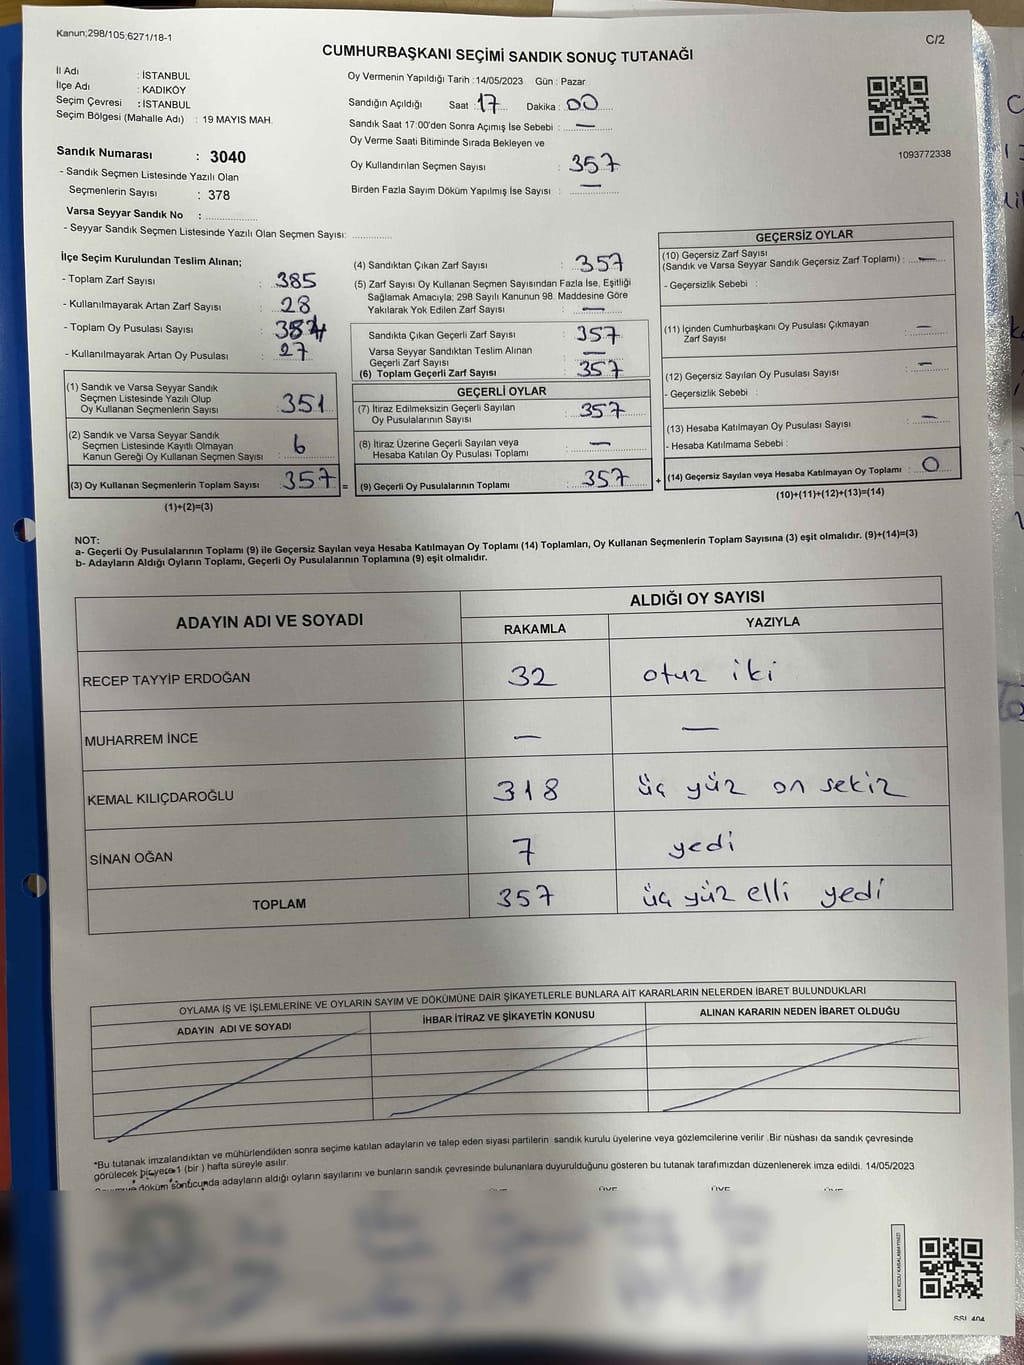 Kanun;298/105;6271/18-1
C/2
CUMHURBAŞKANI SEÇİMİ SANDIK SONUÇ TUTANAĞI
İl Adı : İSTANBUL
İlçe Adı : KADIKÖY
Seçim Çevresi : İSTANBUL
Seçim Bölgesi (Mahalle Adı) : 19 MAYIS MAH.
Sandık Numarası : 3040
- Sandık Seçmen Listesinde Yazılı Olan
Seçmenlerin Sayısı : 378
Varsa Seyyar Sandık No :
- Seyyar Sandık Seçmen Listesinde Yazılı Olan Seçmen Sayısı:
Oy Vermenin Yapıldığı Tarih : 14/05/2023 Gün : Pazar
Sandığın Açıldığı Saat : 17 Dakika : 00
Sandık Saat 17:00'den Sonra Açımış İse Sebebi : —
Oy Verme Saati Bitiminde Sırada Bekleyen ve
Oy Kullandırılan Seçmen Sayısı : 357
Birden Fazla Sayım Döküm Yapılmış İse Sayısı : —
1093772338
İlçe Seçim Kurulundan Teslim Alınan;
- Toplam Zarf Sayısı : 385
- Kullanılmayarak Artan Zarf Sayısı : 28
- Toplam Oy Pusulası Sayısı : 384
- Kullanılmayarak Artan Oy Pusulası : 27
(1) Sandık ve Varsa Seyyar Sandık
Seçmen Listesinde Yazılı Olup
Oy Kullanan Seçmenlerin Sayısı : 351
(2) Sandık ve Varsa Seyyar Sandık
Seçmen Listesinde Kayıtlı Olmayan
Kanun Gereği Oy Kullanan Seçmen Sayısı : 6
(3) Oy Kullanan Seçmenlerin Toplam Sayısı : 357 =
(1)+(2)=(3)
(4) Sandıktan Çıkan Zarf Sayısı : 357
(5) Zarf Sayısı Oy Kullanan Seçmen Sayısından Fazla İse, Eşitliği
Sağlamak Amacıyla; 298 Sayılı Kanunun 98. Maddesine Göre
Yakılarak Yok Edilen Zarf Sayısı : —
Sandıkta Çıkan Geçerli Zarf Sayısı : 357
Varsa Seyyar Sandıktan Teslim Alınan
Geçerli Zarf Sayısı : —
(6) Toplam Geçerli Zarf Sayısı : 357
GEÇERLİ OYLAR
(7) İtiraz Edilmeksizin Geçerli Sayılan
Oy Pusulalarının Sayısı : 357
(8) İtiraz Üzerine Geçerli Sayılan veya
Hesaba Katılan Oy Pusulası Toplamı : —
(9) Geçerli Oy Pusulalarının Toplamı : 357 +
GEÇERSİZ OYLAR
(10) Geçersiz Zarf Sayısı
(Sandık ve Varsa Seyyar Sandık Geçersiz Zarf Toplamı) : —
- Geçersizlik Sebebi :
(11) İçinden Cumhurbaşkanı Oy Pusulası Çıkmayan
Zarf Sayısı : —
(12) Geçersiz Sayılan Oy Pusulası Sayısı : —
- Geçersizlik Sebebi :
(13) Hesaba Katılmayan Oy Pusulası Sayısı : —
- Hesaba Katılmama Sebebi :
(14) Geçersiz Sayılan veya Hesaba Katılmayan Oy Toplamı : 0
(10)+(11)+(12)+(13)=(14)
NOT:
a- Geçerli Oy Pusulalarının Toplamı (9) ile Geçersiz Sayılan veya Hesaba Katılmayan Oy Toplamı (14) Toplamları, Oy Kullanan Seçmenlerin Toplam Sayısına (3) eşit olmalıdır. (9)+(14)=(3)
b- Adayların Aldığı Oyların Toplamı, Geçerli Oy Pusulalarının Toplamına (9) eşit olmalıdır.
ADAYIN ADI VE SOYADI
ALDIĞI OY SAYISI
RAKAMLA YAZIYLA
RECEP TAYYİP ERDOĞAN 32 otuz iki
MUHARREM İNCE — —
KEMAL KILIÇDAROĞLU 318 üç yüz on sekiz
SİNAN OĞAN 7 yedi
TOPLAM 357 üç yüz elli yedi
OYLAMA İŞ VE İŞLEMLERİNE VE OYLARIN SAYIM VE DÖKÜMÜNE DAİR ŞİKAYETLERLE BUNLARA AİT KARARLARIN NELERDEN İBARET BULUNDUKLARI
ADAYIN ADI VE SOYADI İHBAR İTİRAZ VE ŞİKAYETİN KONUSU ALINAN KARARIN NEDEN İBARET OLDUĞU
*Bu tutanak imzalandıktan ve mühürlendikten sonra seçime katılan adayların ve talep eden siyasi partilerin sandık kurulu üyelerine veya gözlemcilerine verilir .Bir nüshası da sandık çevresinde
görülecek bir yere 1 (bir ) hafta süreyle asılır.
döküm sonucunda adayların aldığı oyların sayılarını ve bunların sandık çevresinde bulunanlara duyurulduğunu gösteren bu tutanak tarafımızdan düzenlenerek imza edildi. 14/05/2023